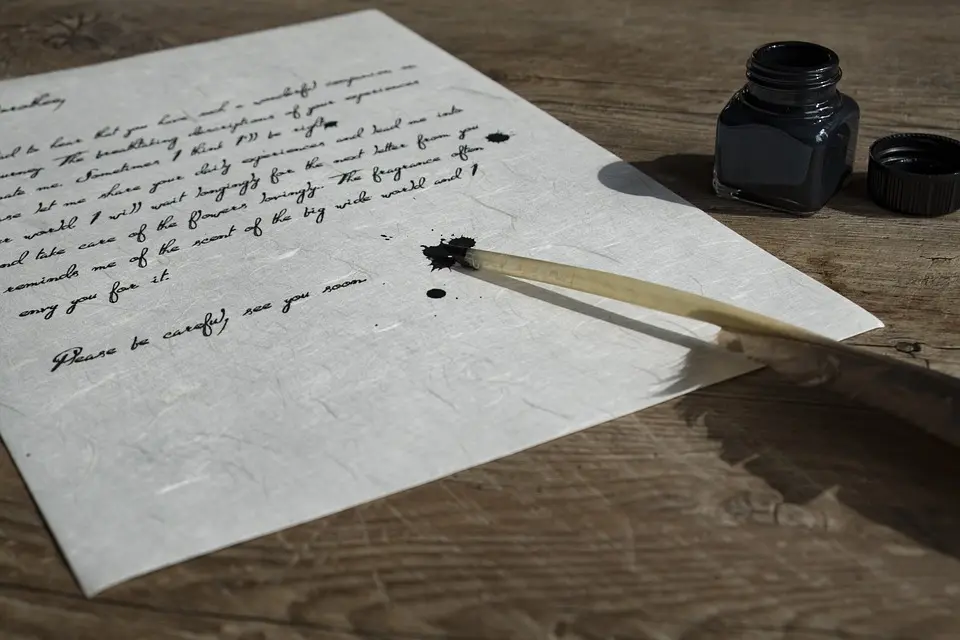 to hear that you have a wonderful companion on
The breathtaking descriptions of your experiences
me. Sometimes I think I'll be right
let me share your daily experiences and lead me into
world I will wait longingly for the next letter from you
and take care of the flowers lovingly. The fragrance often
reminds me of the scent of the big wide world and I
envy you for it
Please be careful, see you soon